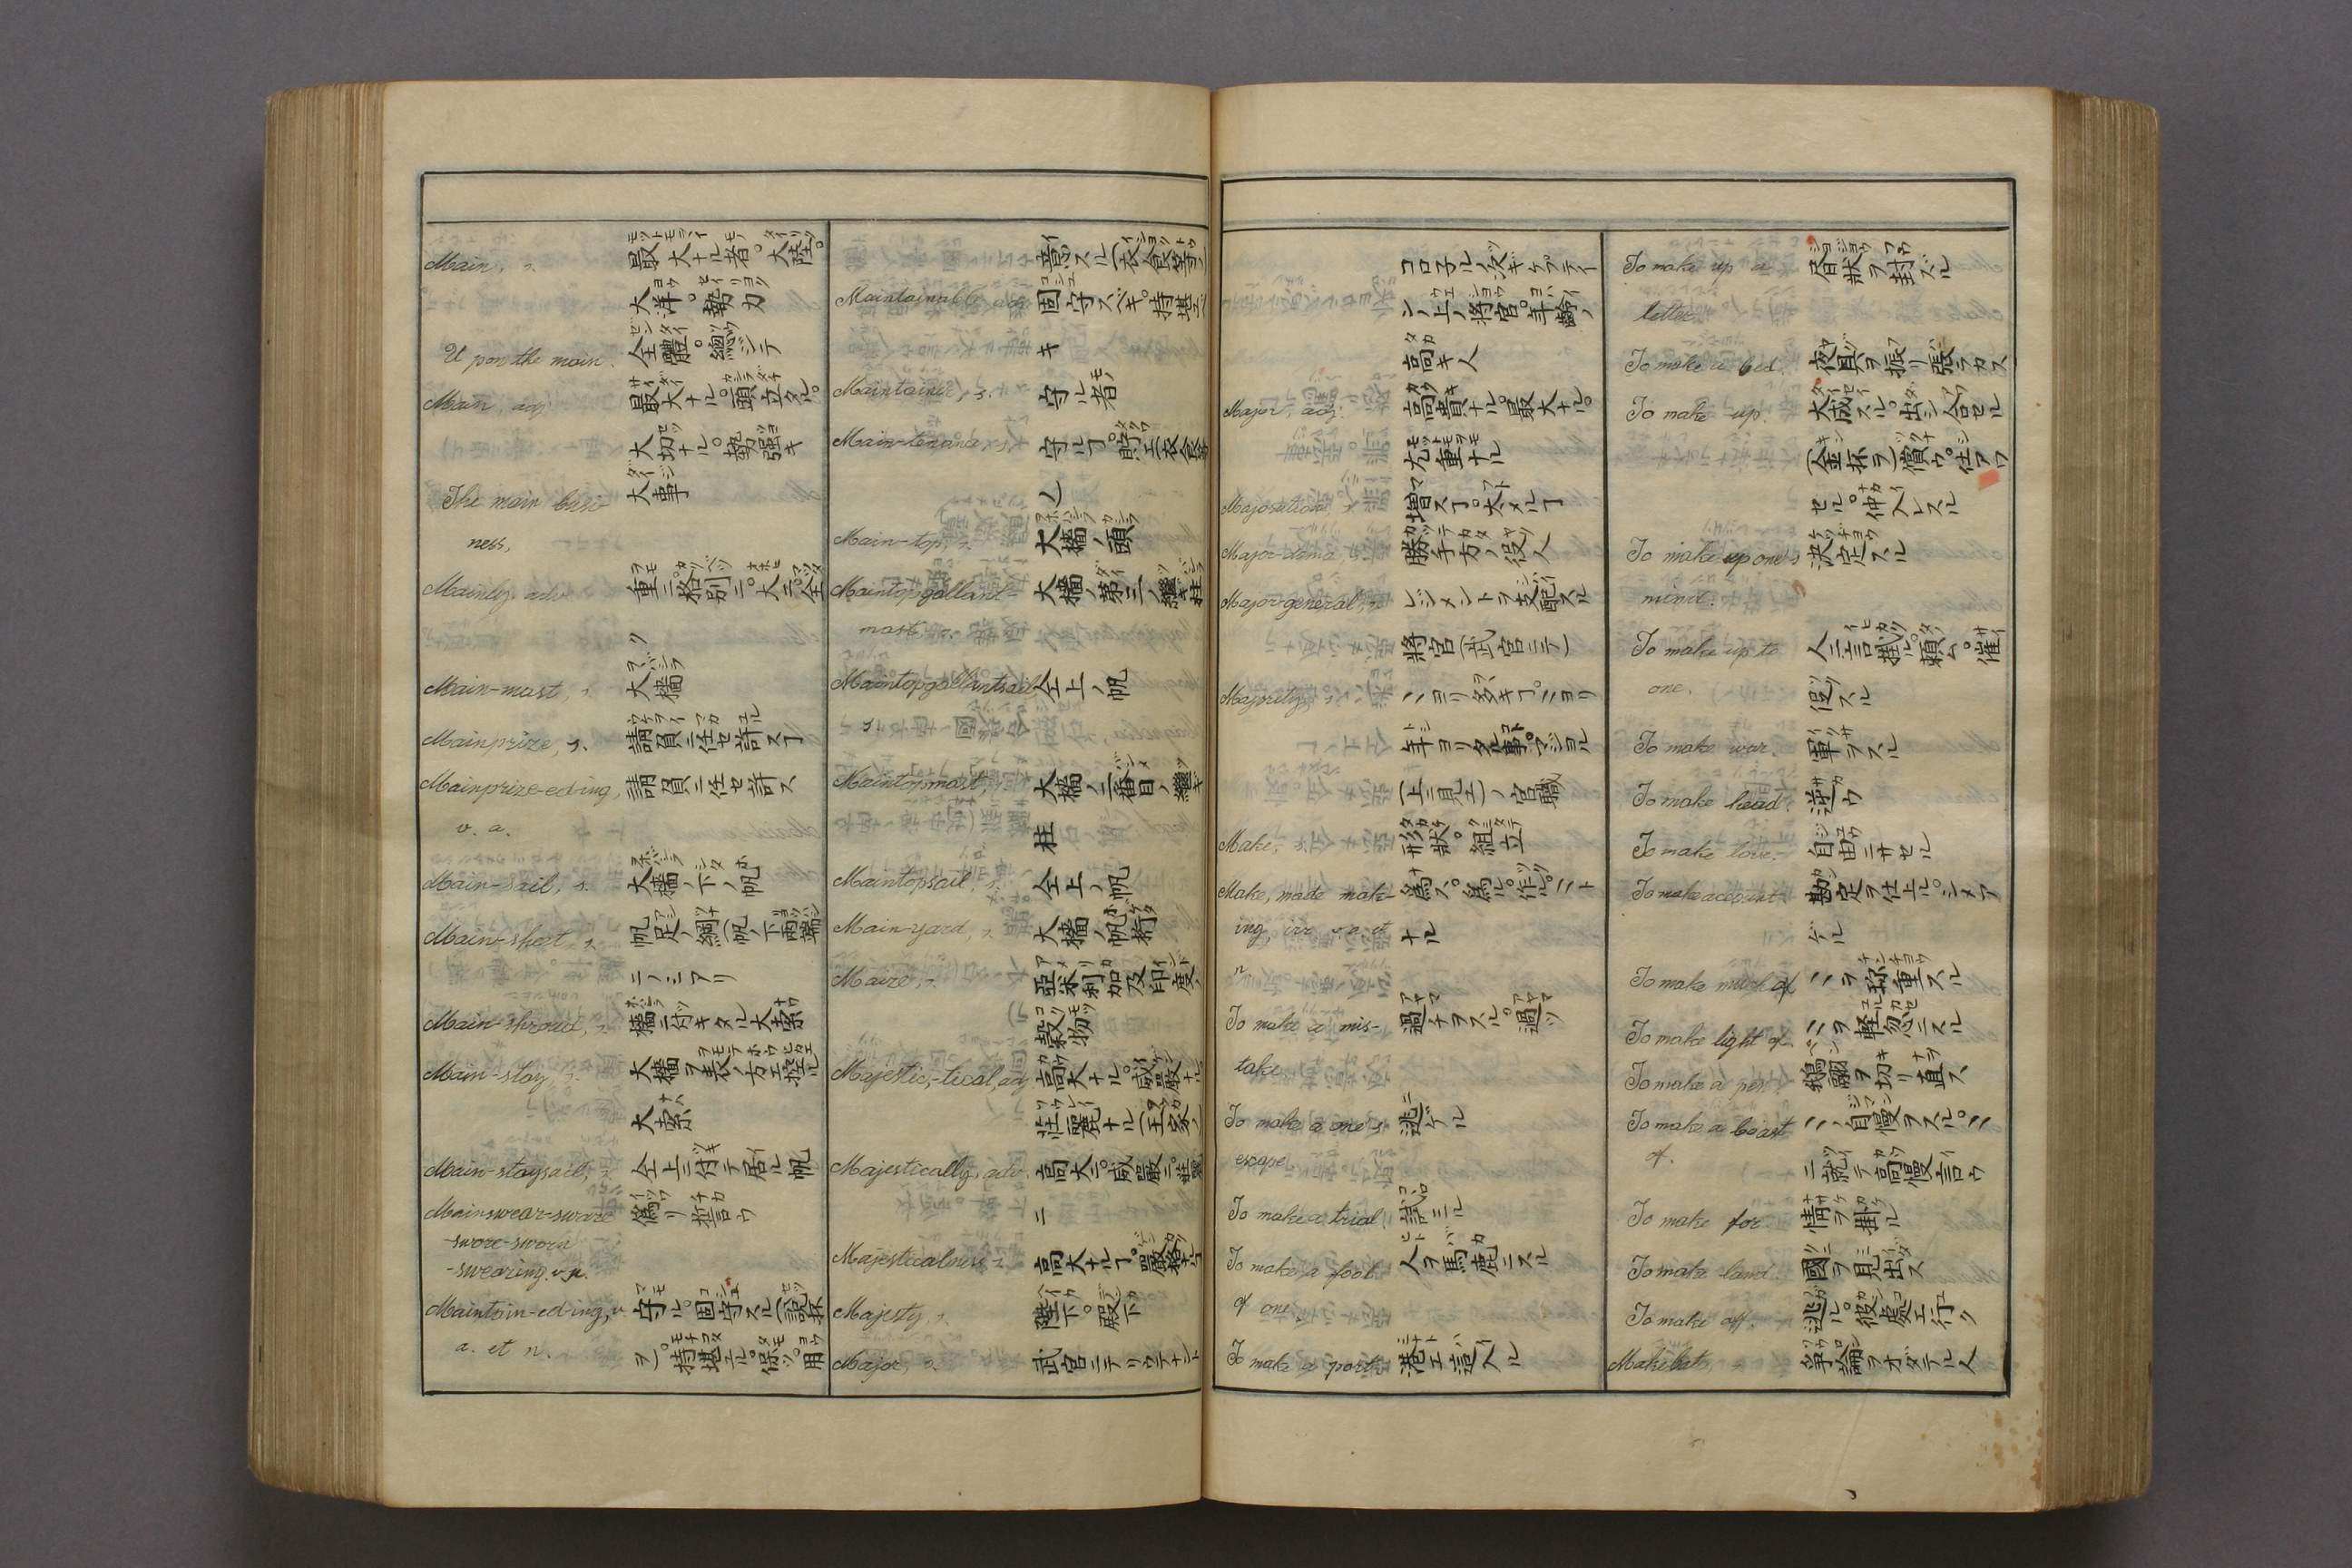 Main, s. 最大ナル者。大陸。
大洋。勢力
Upon the main. 全體。總シテ
Main, adj. 最大ナル。頭立タル。
大切ナル。勢強キ
The main busi- 大事
ness,
Mainly, adv. 重ニ。格別ニ。大ニ。全
ク
Main-mast, s. 大檣
Mainprize, s. 請負ニ任セ許スヿ
Mainprize-ed-ing, 請負ニ任セ許ス
v. a.
Main-sail, s. 大檣ノ下ノ帆
Main-sheet, s. 帆足ノ綱(帆ノ下両端
ニノミアリ
Main-shroud, s. 檣ニ付キタル大索
Main-stay, s. 大檣ヲ表ノ方エ控ル
大索
Main-staysail, s. 仝上ニ付テ居ル帆
Mainswear-sware 偽リ誓ウ
-swore-sworn
-swearing. v. n.
Maintain-ed-ing, v. 守ル。固守スル(説抔
a. et n. ヲ)。持堪エル。保ツ。用
意スル(衣食等ノ
Maintainable, adj. 固守スベキ。持堪エ
キ
Maintainer, s. 守ル者
Main-tenance, s. 守ルヿ。貯エ(衣食等
ノ
Main-top, s. 大檣ノ頭
Maintopgallant- 大檣ノ第三ノ繼キ柱
mast, s.
Maintopgallantsail 仝上ノ帆
s.
Maintopmast, s. 大檣ノ二番目ノ繼キ
柱
Maintopsail, s. 仝上ノ帆
Main-yard, s. 大檣ノ帆桁
Maize, s. 亞米利加及印度ノ
穀物
Majestic,-tical, adj. 高大ナル。威嚴ナル
壮麗ナル(王家ノ
Majestically, adv. 高大ニ。威嚴ニ。壮麗
ニ
Majesticalness, s. 高大ナルヿ。嚴格ナル
Majesty, s. 陛下。殿下
Major, s. 武官ニテリウテナント
コロ子ルノ次ギケプティー
ンノ上ノ將官。年齢ノ
高キ人
Major, adj. 高貴ナル。最大ナル。
尤重ナル
Majoration, s. 増スヿ。太メルヿ
Major-domo, s. 勝手方ノ役人
Major-general, s. レジメントヲ支配スル
將官(武官ニテ一
Majority, s. 〻ヨリ多キヿ。〻ヨリ
年ヨリタル事。マジョル
(上ニ見エ)ノ官職
Make, s. 形狀。組立
Make, made mak- 為ス。為ル。作ル。〻ト
ing, irr. v. a. et ナル
n.
To make a mis- 過チヲスル。過ツ
take
To make a one's 逃ゲル
escape
To make a trial 試ミル
To make a fool 人ヲ馬鹿ニスル
of one,
To make a port. 港エ這入ル
To make up a 書狀ヲ封ズル
letter.
To make a bed. 夜具ヲ振リ張ラカス
To make up. 大成スル。出シ合セル
(金抔ヲ)償ウ。仕アワ
セル。仲入レスル
To make up one's 決定スル
mind.
To make up to 人ニ言掛ル。頼ム。催
one. 促スル
To make war. 軍ヲスル
To make head. 逆ウ
To make love. 自由ニサセル
To make account. 勘定ヲ仕上ル。シメア
ゲル
To make much of. 〻ヲ珎重スル
To make light of. 〻ヲ軽忽ニスル
To make a pen. 鵝翮ヲ切リ直ス
To make a boast 〻ノ自慢ヲスル。〻
of. ニ就テ高慢言ウ
To make for. 情ヲ掛ル
To make land. 國ヲ見出ス
To make off. 逃ル。彼處エ行ク
Makebate, s. 争論ヲオダテル人